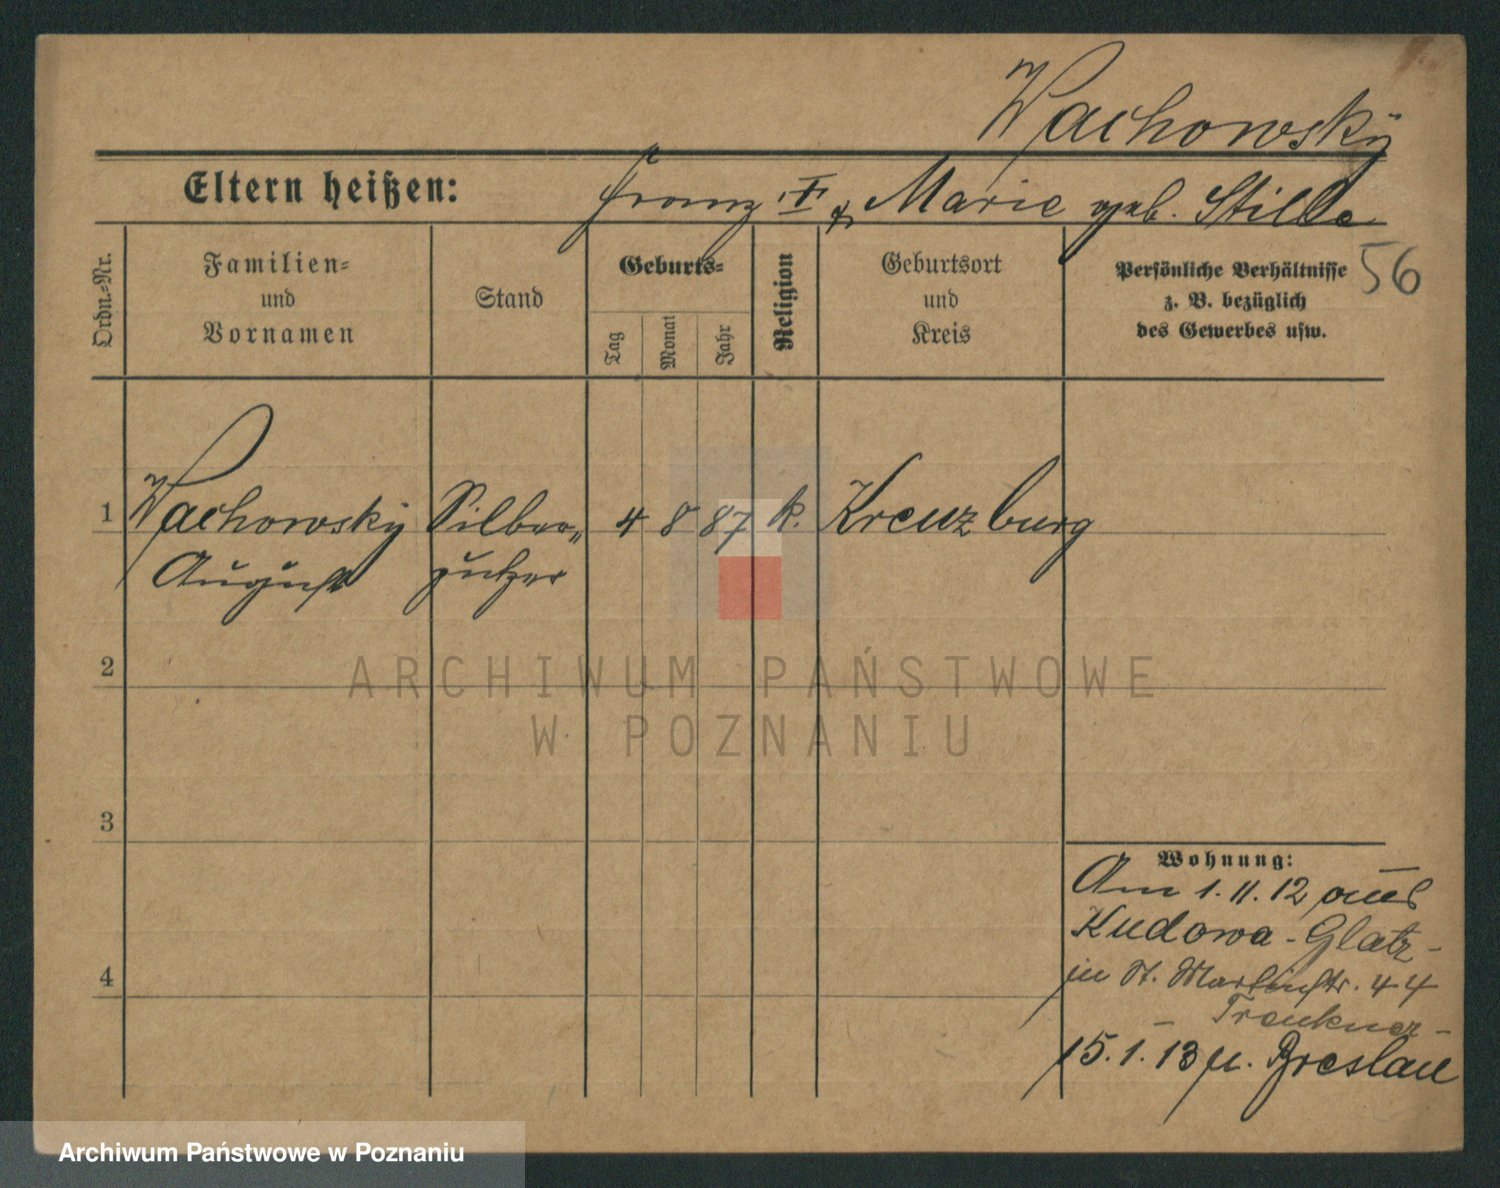 Wachowsky
Eltern heißen: Franz u. Marie geb. Stille
56
Ordn.=Nr.
Familien=
und
Vornamen
Stand
Geburts=
Tag
Monat
Jahr
Religion
Geburtsort
und
Kreis
Persönliche Verhältnisse
z. B. bezüglich
des Gewerbes usw.
1 Wachowsky Silber= 4 8 87 k. Kreuzburg
August putzer
2
3
4
Wohnung:
Am 1.11.12 aus
Kudowa-Glatz-
in St. Martinstr. 44
15.1.13 n. Breslau
ARCHIWUM PAŃSTWOWE
W POZNANIU
Archiwum Państwowe w Poznaniu